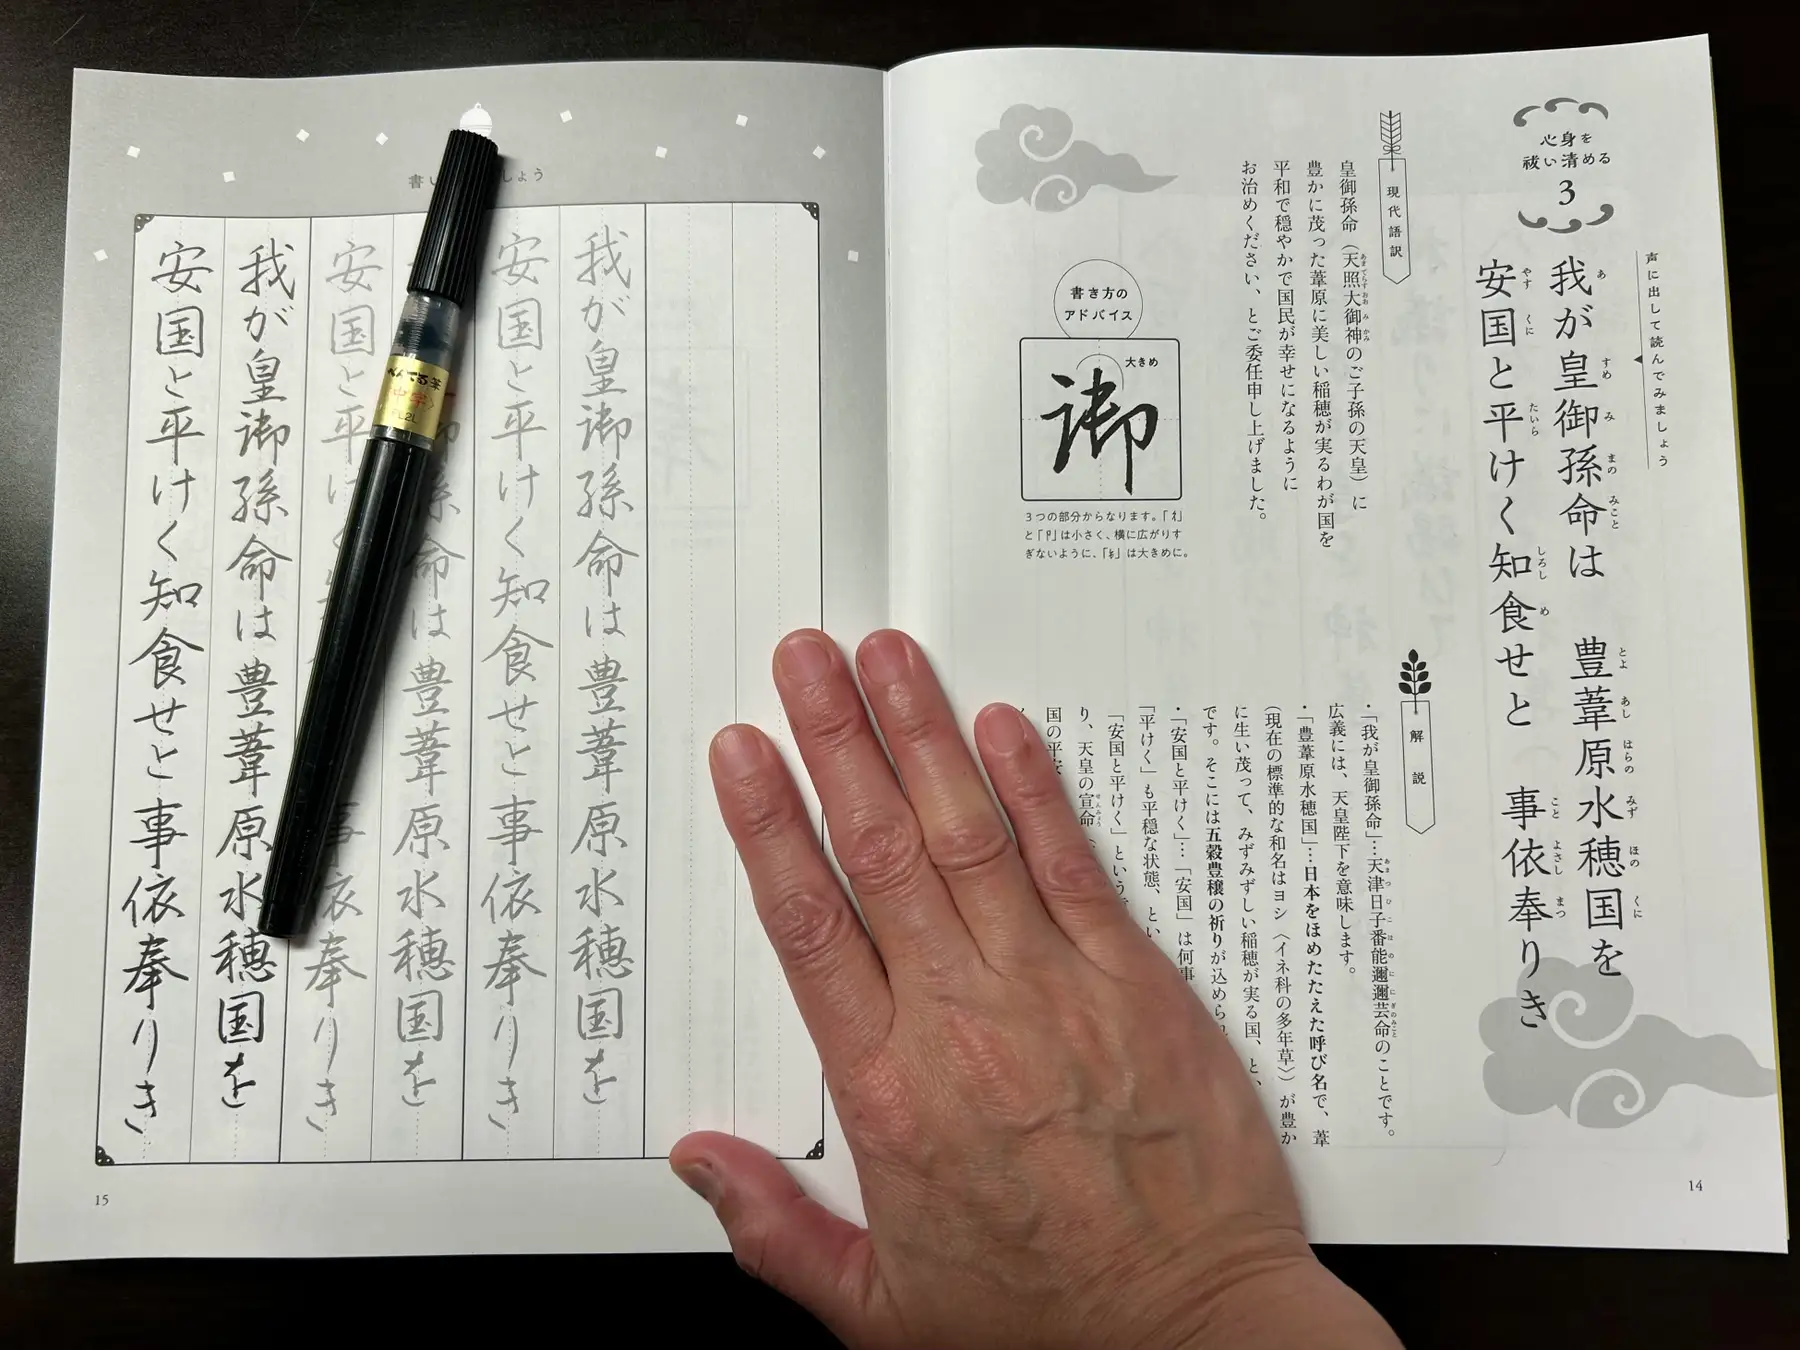 心身を
祓い清める
3
声に出して読んでみましょう
我が皇御孫命は 豊葦原水穂国を
あ すめ み まの みこと とよ あし はらの みず ほの くに
安国と平けく知食せと 事依奉りき
やす くに たいら しろし め こと よさし まつ
現代語訳
皇御孫命(天照大御神のご子孫の天皇)に
あまてらすおおみかみ
豊かに茂った葦原に美しい稲穂が実るわが国を
平和で穏やかで国民が幸せになるように
お治めください、とご委任申し上げました。
書き方の
アドバイス
大きめ
御
3つの部分からなります。「彳」
と「卩」は小さく、横に広がりす
ぎないように、「」は大きめに。
解説
・「我が皇御孫命」…天津日子番能邇邇芸命のことです。
あまつひこほのににぎのみこと
広義には、天皇陛下を意味します。
・「豊葦原水穂国」…日本をほめたたえた呼び名で、葦
(現在の標準的な和名はヨシ〈イネ科の多年草〉)が豊か
に生い茂って、みずみずしい稲穂が実る国、と、
です。そこには五穀豊穣の祈りが込められ
・「安国と平けく」…「安国」は何事
「平けく」も平穏な状態、とい
「安国と平けく」という
り、天皇の宣命(
せんみょう
国の平安
14
書い しょう
我が皇御孫命は豊葦原水穂国を
安国と平けく知食せと事依奉りき
は豊葦原水穂国を
安国と平け 事依奉りき
我が皇御孫命は豊葦原水穂国を
安国と平けく知食せと事依奉りき
15
ぺんてる筆
中字
FL2L